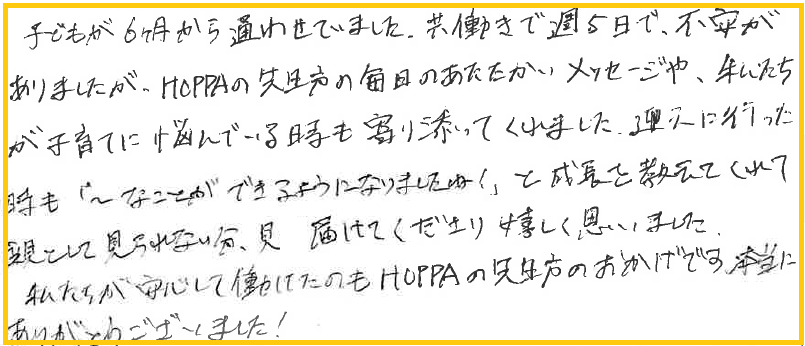 子どもが6ヶ月から通わせていました。共働きで週5日で、不安が
ありましたが、HOPPAの先生方の毎日のあたたかいメッセージや、私たち
が子育てに悩んでいる時も寄り添ってくれました。迎えに行った
時も「〜なことができるようになりましたよ!」と成長を教えてくれて
親として見られない分、見届けてくださり嬉しく思いました。
私たちが安心して働けたのもHOPPAの先生方のおかげです。本当に
ありがとうございました!